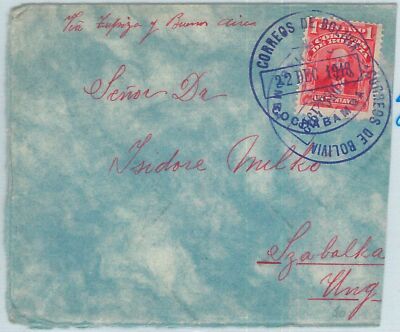 Via Tupiza y Buenos Aires
CORREOS DE BOLIVIA
22 DEC 1913
COCHABAMBA
CORREOS DE BOLIVIA
1
1
DE BOLIVIA
UN CENTAVO
Señor Dr
Isidore Milko
Szabatka
Ung